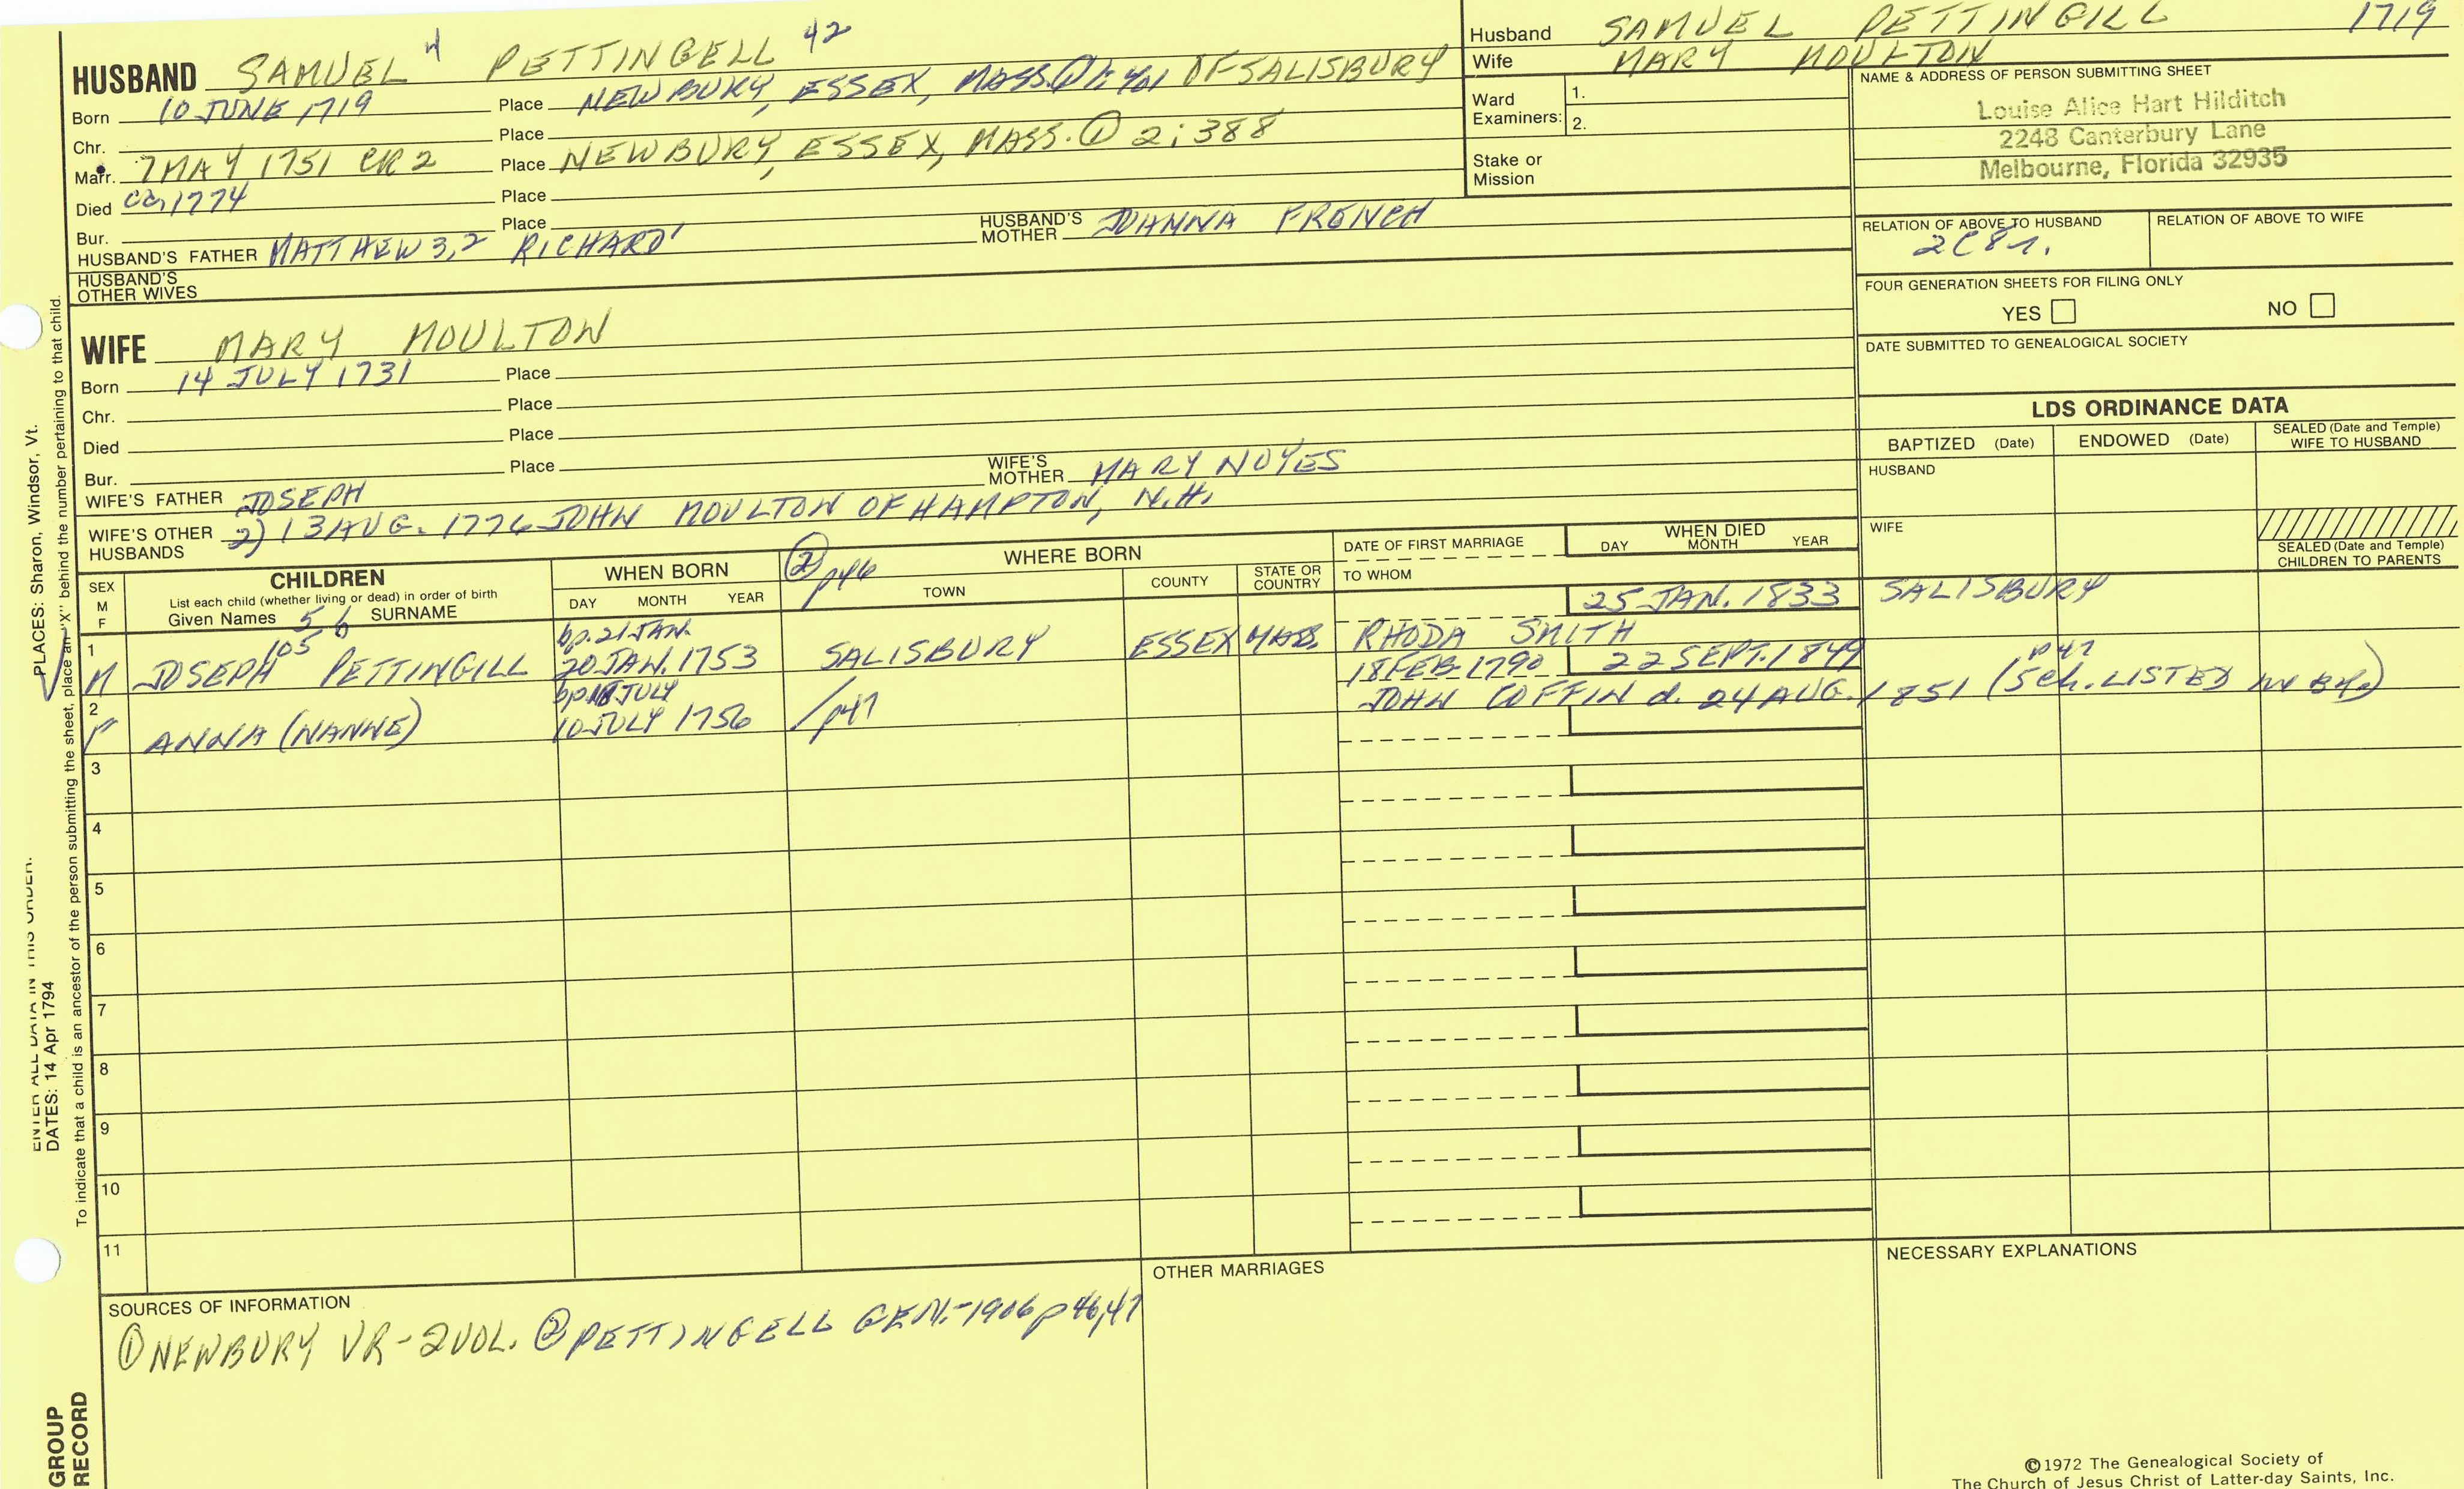 HUSBAND SAMUEL 4 PETTINGELL 42
Born 10 JUNE 1719 Place NEWBURY, ESSEX, MASS. ① 1: 401 OF SALISBURY
Chr. Place
Marr. 7 MAY 1751 CR 2 Place NEWBURY, ESSEX, MASS. ① 2:388
Died ca 1774 Place
Bur. Place
HUSBAND'S FATHER MATTHEW 3,2 RICHARD' HUSBAND'S MOTHER JOANNA FRENCH
HUSBAND'S OTHER WIVES
WIFE MARY MOULTON
Born 14 JULY 1731 Place
Chr. Place
Died Place
Bur. Place
WIFE'S FATHER JOSEPH WIFE'S MOTHER MARY NOYES
WIFE'S OTHER HUSBANDS 2) 13 AUG. 1776 JOHN MOULTON OF HAMPTON, N.H.
Husband SAMUEL PETTINGILL 1719
Wife MARY MOULTON
Ward Examiners: 1.
2.
Stake or Mission
NAME & ADDRESS OF PERSON SUBMITTING SHEET
Louise Alice Hart Hilditch
2248 Canterbury Lane
Melbourne, Florida 32935
RELATION OF ABOVE TO HUSBAND RELATION OF ABOVE TO WIFE
2C8r.
FOUR GENERATION SHEETS FOR FILING ONLY
YES NO
DATE SUBMITTED TO GENEALOGICAL SOCIETY
LDS ORDINANCE DATA
BAPTIZED (Date) ENDOWED (Date) SEALED (Date and Temple) WIFE TO HUSBAND
HUSBAND
WIFE
SEALED (Date and Temple) CHILDREN TO PARENTS
SEX M F
CHILDREN
List each child (whether living or dead) in order of birth
Given Names 5 6 SURNAME
WHEN BORN
DAY MONTH YEAR
② p46 WHERE BORN
TOWN COUNTY STATE OR COUNTRY
DATE OF FIRST MARRIAGE
TO WHOM
WHEN DIED
DAY MONTH YEAR
25 JAN. 1833 SALISBURY
1 105 bp. 21 JAN. RHODA SMITH
M JOSEPH PETTINGILL 20 JAN. 1753 SALISBURY ESSEX MASS.
2 bp 18 JULY 18 FEB. 1790 22 SEPT. 1849 p47
F ANNA (NANNE) 10 JULY 1756 /p47 JOHN COFFIN d. 24 AUG. 1851 (5 ch. LISTED IN BK.)
3
4
5
6
7
8
9
10
11
SOURCES OF INFORMATION
① NEWBURY VR - 2 VOL. ② PETTINGELL GEN. - 1906 p 46,47
OTHER MARRIAGES
NECESSARY EXPLANATIONS
©1972 The Genealogical Society of
The Church of Jesus Christ of Latter-day Saints, Inc.
ENTER ALL DATA IN THIS ORDER:
PLACES: Sharon, Windsor, Vt.
DATES: 14 Apr 1794
To indicate that a child is an ancestor of the person submitting the sheet, place an "X" behind the number pertaining to that child.
GROUP
RECORD